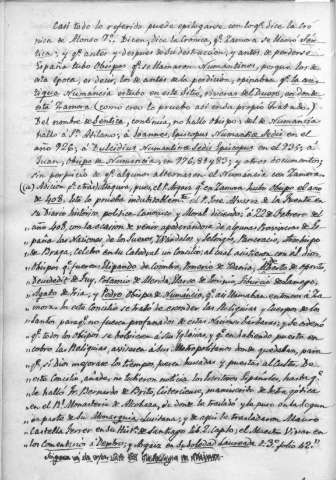 Casi todo lo referido puede epilogarse con lo q.e dice la Cro
nica de Alonso 7.o Dicen, dice la Crónica, q.e Zamora se llamó Sen
tica; y q.e antes y despues de su destruccion, y antes de perderse
España tubo Obispos q.e se llamaron Numantinos, porque los de
esta época, es decir, los de antes de la perdicion, opinaban q.e la an
tigua Numancia estubo en este sitio, riveras del Duero, en donde
está Zamora (como creo lo pruebo así en la propio tratado.)
Del nombre de Sentica, continúa, no hallo Obispo: del de Numancia
hallo à S.n Atilano; à Joannes, Episcopus Numantiae Sedis en el
año 926; à Dulcidius Numantinae Sedis Episcopus en el 935; à
Juan, Obispo de Numancia, en 976, 83 y 85; y otros documentos;
sin perjuicio de q.e algunos alternaron el Numancia con Zamora
(a) Adicion à esta pues, el P. Argaiz q.e en Zamora hubo Obispo el año
de 408. Esto lo prueba indubitablem.te el P. Jose Alvarez de la Fuente en
su Diario histórico, politico Canonico y Moral diciendo: à 22 de Febrero del
año 408, con la ocasion de venir apoderandose de algunas Provincias de Es
paña las Naciones, de los Suevos, Wandalos y Selingos, Pancracio, Arzobispo
de Braga, celebró en su Catedral un Concilio, al cual asistieron con el diez
Obispos q.e fueron Elipando de Coimbra, Pamerio de Idania, Arisberto de Oporto,
Deudedit de Luy, Potamio de Merida, de Lamego,
Agato de Iria, y Pedro Obispo de Numancia, q.e asi llamaban entonces à Za
mora. En este Concilio se trató de esconder las Reliquias y cuerpos de los
Santos para q.e no fuesen profanados de estas Naciones barbaras; y se ordenó
q.e todos los Obispos se bolviesen à sus Yglesias, y q.e en habiendo puesto en
cobro las Reliquias, avisasen à sus Metropolitanos donde quedaban, para
q.e, si Dios mejorase los tiempos, fuesen buscadas y puestas al culto. De
este Concilio, añade, no tubieron noticia los Escritores Españoles, hasta q.e
le halló Fr. Bernardo de Brito, Cisterciense, manuscrito de letra gótica
en el R.l Monasterio de Alcobaza, de donde lo trasladó, y le puso en la segun
da parte de su Monarquia Lusitana; y de aqui lo trasladaron Mauro
Castella Ferrer en su Hist.a de Santiago lib. 2. Cap.o, el Maestro Vivar en
los Comentarios à Dextro; y Argaiz en su Soledad Laureada t. 3.o folio 42.